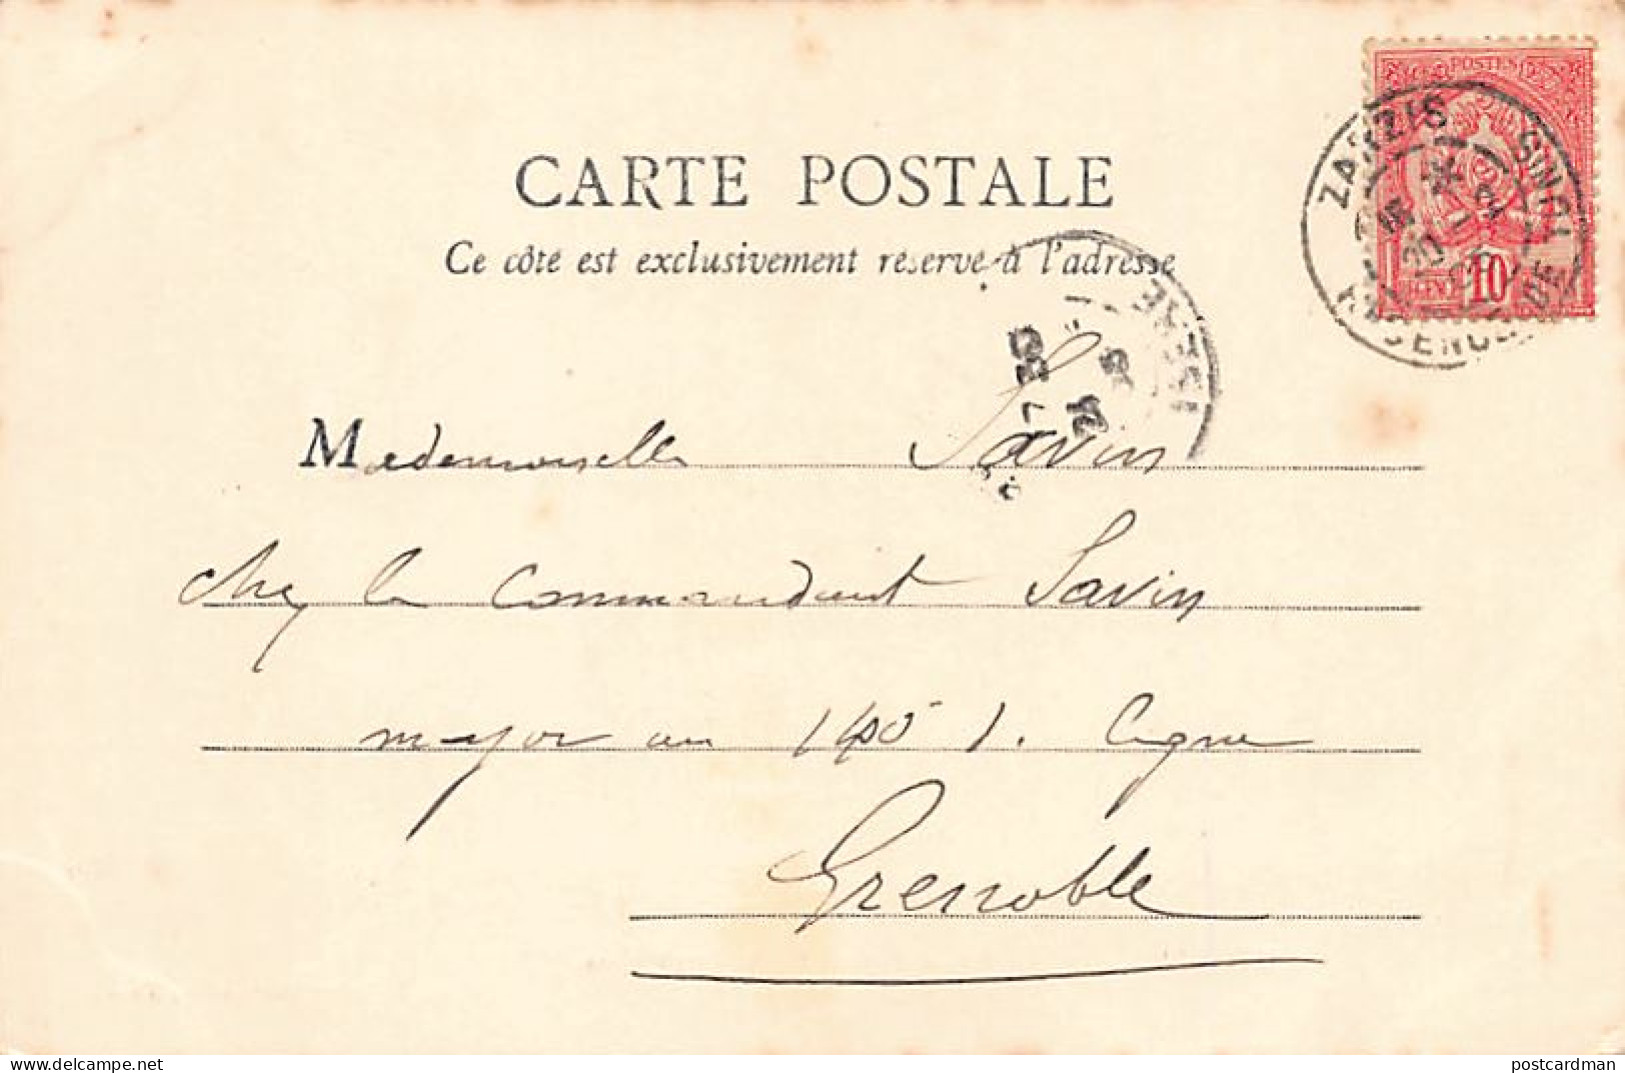 POSTES
10
ZARZIS
TUNIS
CARTE POSTALE
Ce côté est exclusivement réservé à l'adresse
ISÈRE
Mademoiselle Savin
chez le Commandant Savin
major au 140e d. Ligne
Grenoble
delcampe.net
postcardman